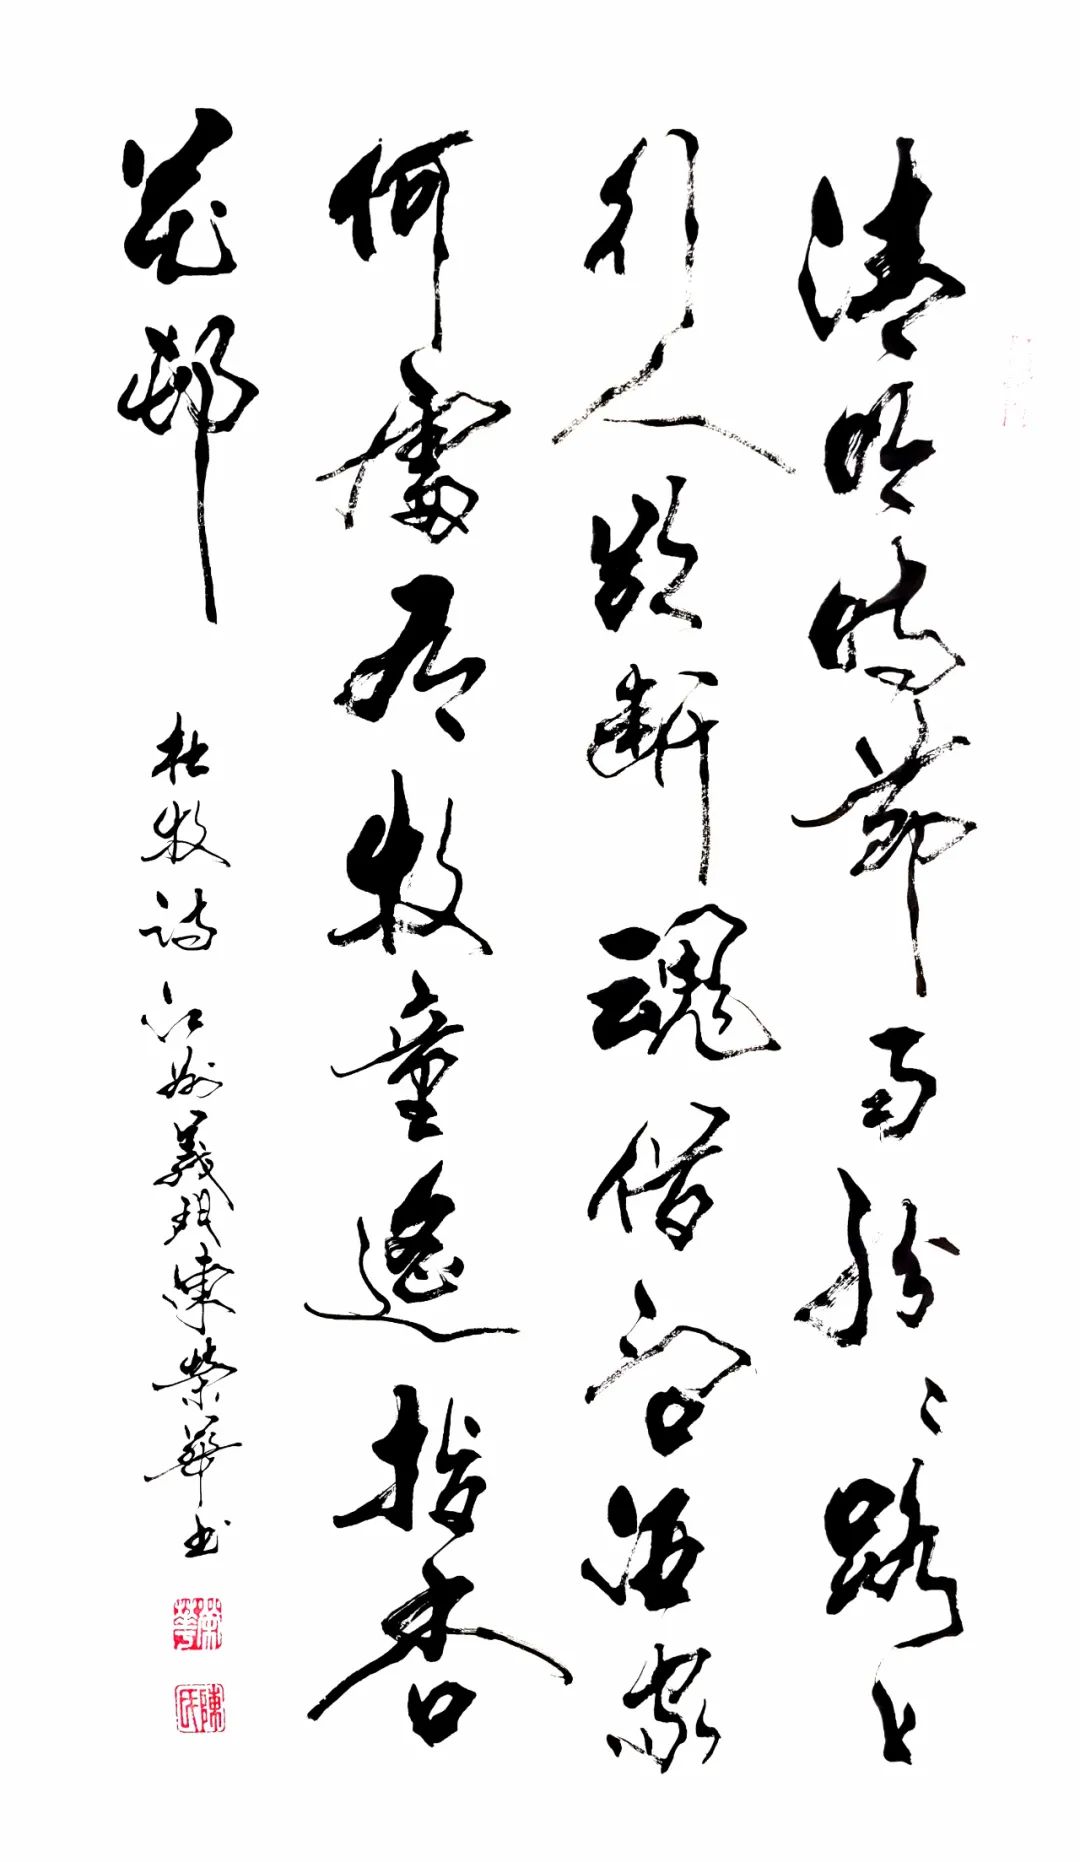 清明時節雨紛〻路上
行人欲斷魂借問酒家
何處有牧童遙指杏
花邨
杜牧詩江州義門陳榮華书
榮華
陳氏